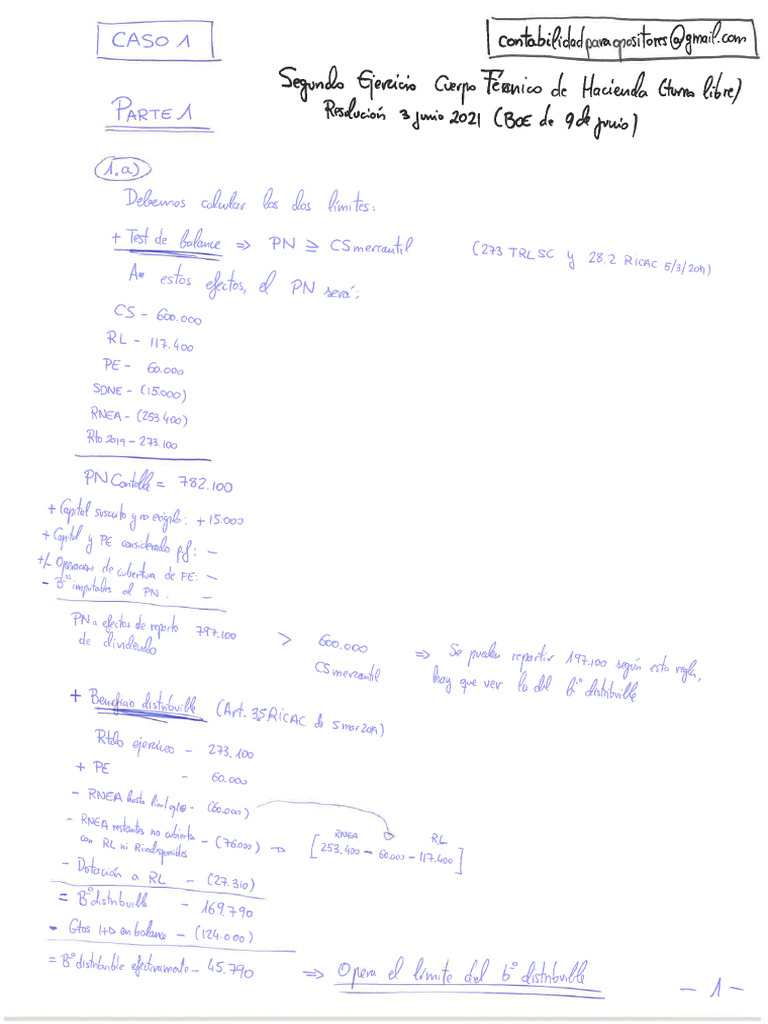 CASO 1
contabilidadparaopositores@gmail.com
Segundo Ejercicio Cuerpo Técnico de Hacienda (turno libre)
Resolución 3 junio 2021 (BOE de 9 de junio)
PARTE 1
1.a)
Debemos calcular los dos límites:
+ Test de balance ⇒ PN ≥ CS mercantil (273 TRLSC y 28.2 RICAC 5/3/2019)
A estos efectos, el PN será:
CS - 600.000
RL - 117.400
PE - 60.000
SDNE - (15.000)
RNEA - (253.400)
Rto 2019 - 273.100
PN Contable = 782.100
+ Capital suscrito y no exigido: + 15.000
+ Capital y PE considerado pf: -
+/- Operación de cobertura de FE: -
- Bºs imputables al PN: -
PN a efectos de reparto de dividendo 797.100 > 600.000 CS mercantil ⇒ Se pueden repartir 197.100 según esta regla, hay que ver la del bº distribuible
+ Beneficio distribuible (Art. 3.5 RICAC de 5 mar 2019)
Rtdo ejercicio - 273.100
+ PE - 60.000
- RNEA hasta - (60.000)
- RNEA restantes no cubierta con RL ni R indisponibles - (76.000) → [RNEA 253.400 - 60.000 - RL 117.400]
- Dotación a RL - (27.310)
= Bº distribuible - 169.790
- Gtos I+D en balance - (124.000)
= Bº distribuible efectivamente - 45.790 ⇒ Opera el límite del bº distribuible
- 1 -